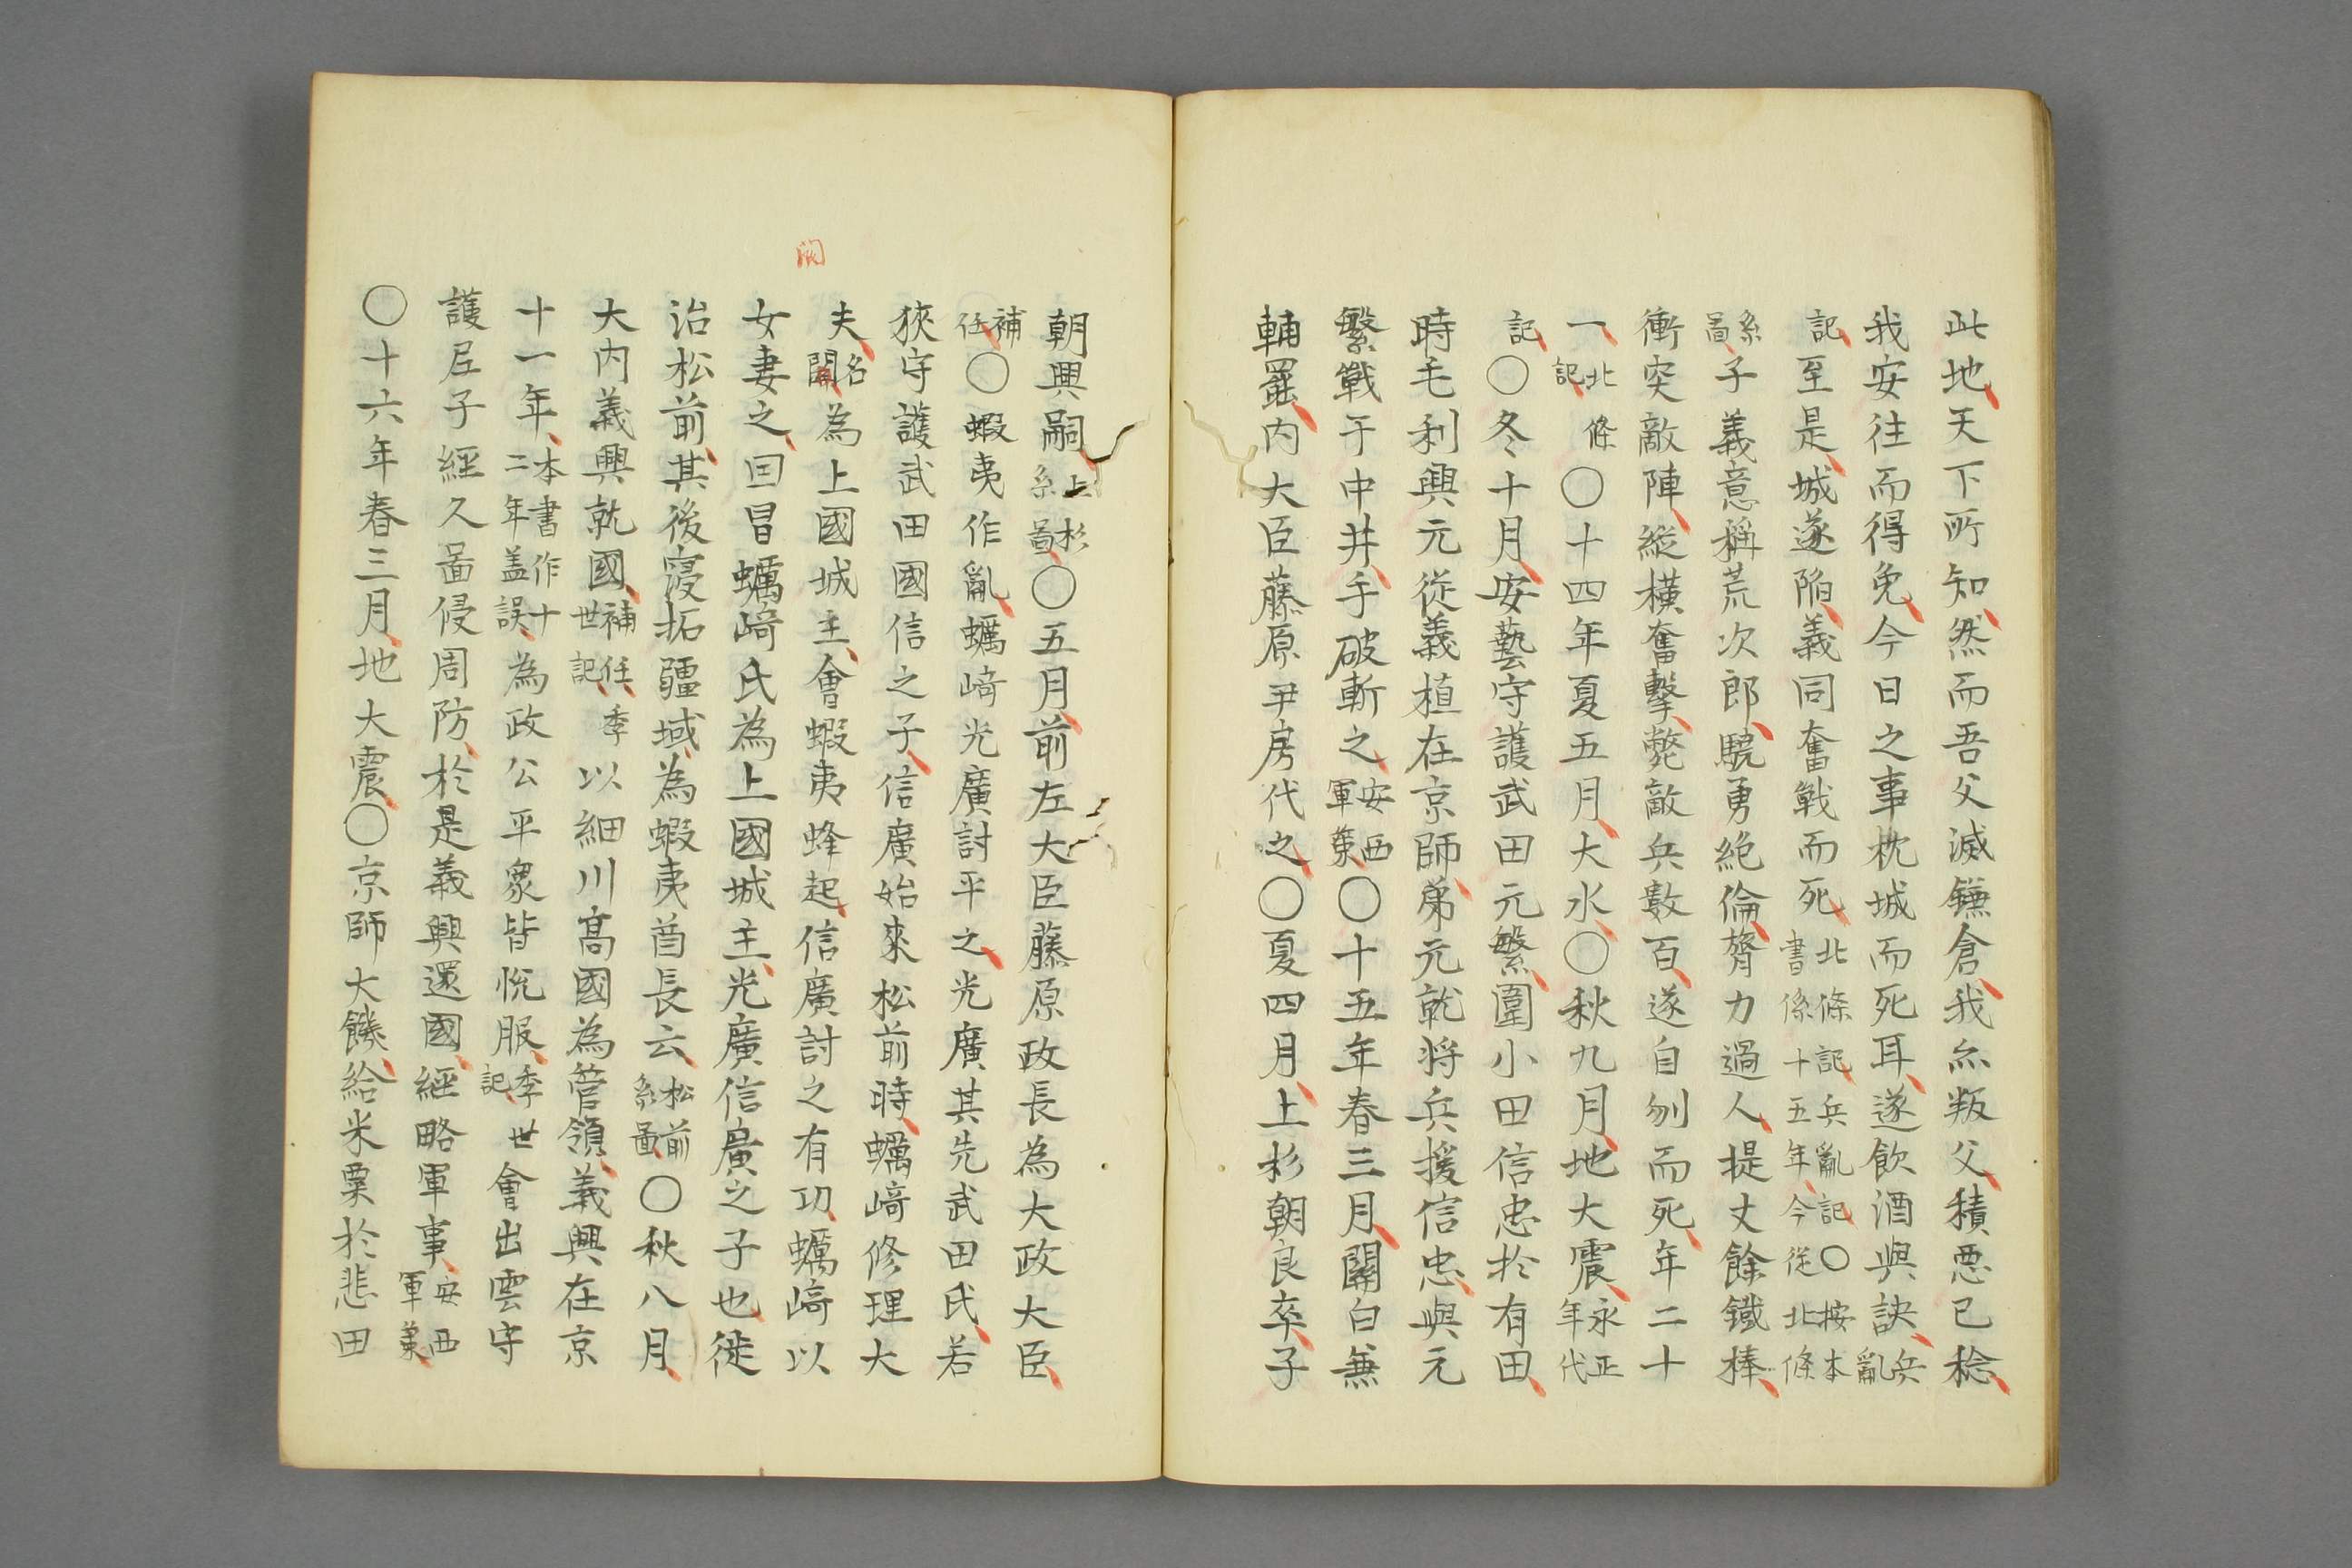 此地天下所知然而吾父滅鎌倉我亦叛父積悪已稔
我安往而得免今日之事枕城而死耳遂飲酒與訣兵亂
記至是城遂陥義同奮戦而死北條記兵亂記〇按本書係十五年今從北條
系圖子義意稱荒次郎驍勇絶倫膂力過人提丈餘鐵棒
衝突敵陣縦横奮撃斃敵兵數百遂自刎而死年二十
一北條記〇十四年夏五月大水〇秋九月地大震永正年代
記〇冬十月安藝守護武田元繁圍小田信忠於有田
時毛利興元從義植在京師弟元就将兵援信忠與元
繁戦于中井手破斬之安西軍策〇十五年春三月關白無
輔罷内大臣藤原尹房代之〇夏四月上杉朝良卒子
朝興嗣上杉系圖〇五月前左大臣藤原政長為大政大臣
補任〇蝦夷作亂蠣﨑光廣討平之光廣其先武田氏若
狹守護武田國信之子信廣始來松前時蠣﨑修理大
夫名闕為上國城主會蝦夷蜂起信廣討之有功蠣﨑以
闕
女妻之因冒蠣﨑氏為上國城主光廣信廣之子也徙
治松前其後寖拓疆域為蝦夷酋長云松前系圖〇秋八月
大内義興就國補任季世記以細川髙國為管領義興在京
十一年本書作十二年盖誤為政公平衆皆悅服季世記會出雲守
護尼子經久圖侵周防於是義興還國經略軍事安西軍策
〇十六年春三月地大震〇京師大饑給米粟於悲田